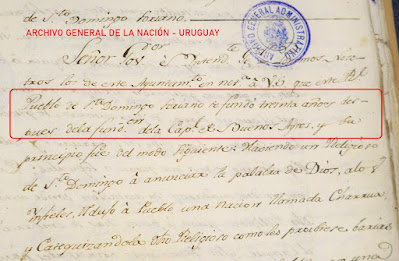 de S.to Domingo Soriano.
ARCHIVO GENERAL DE LA NACIÓN - URUGUAY
ARCHIVO GENERAL ADMINISTRATIVO
Señor Gov.or
tros los de este Ayuntam.to en not.a à V.S que este R.l
Pueblo de S.to Domingo Soriano se fundó treinta años des-
pues de la fund.on de la Cap.l de Buenos Ayres, y su
principio fue del modo siguiente: Haciendo un Religioso
de S.to Domingo à anunciar la palabra de Dios, à los
Infieles, redujo à Pueblo una Nacion llamada Charrua,
y Catequizandola otro Religioso como los prohibiese,